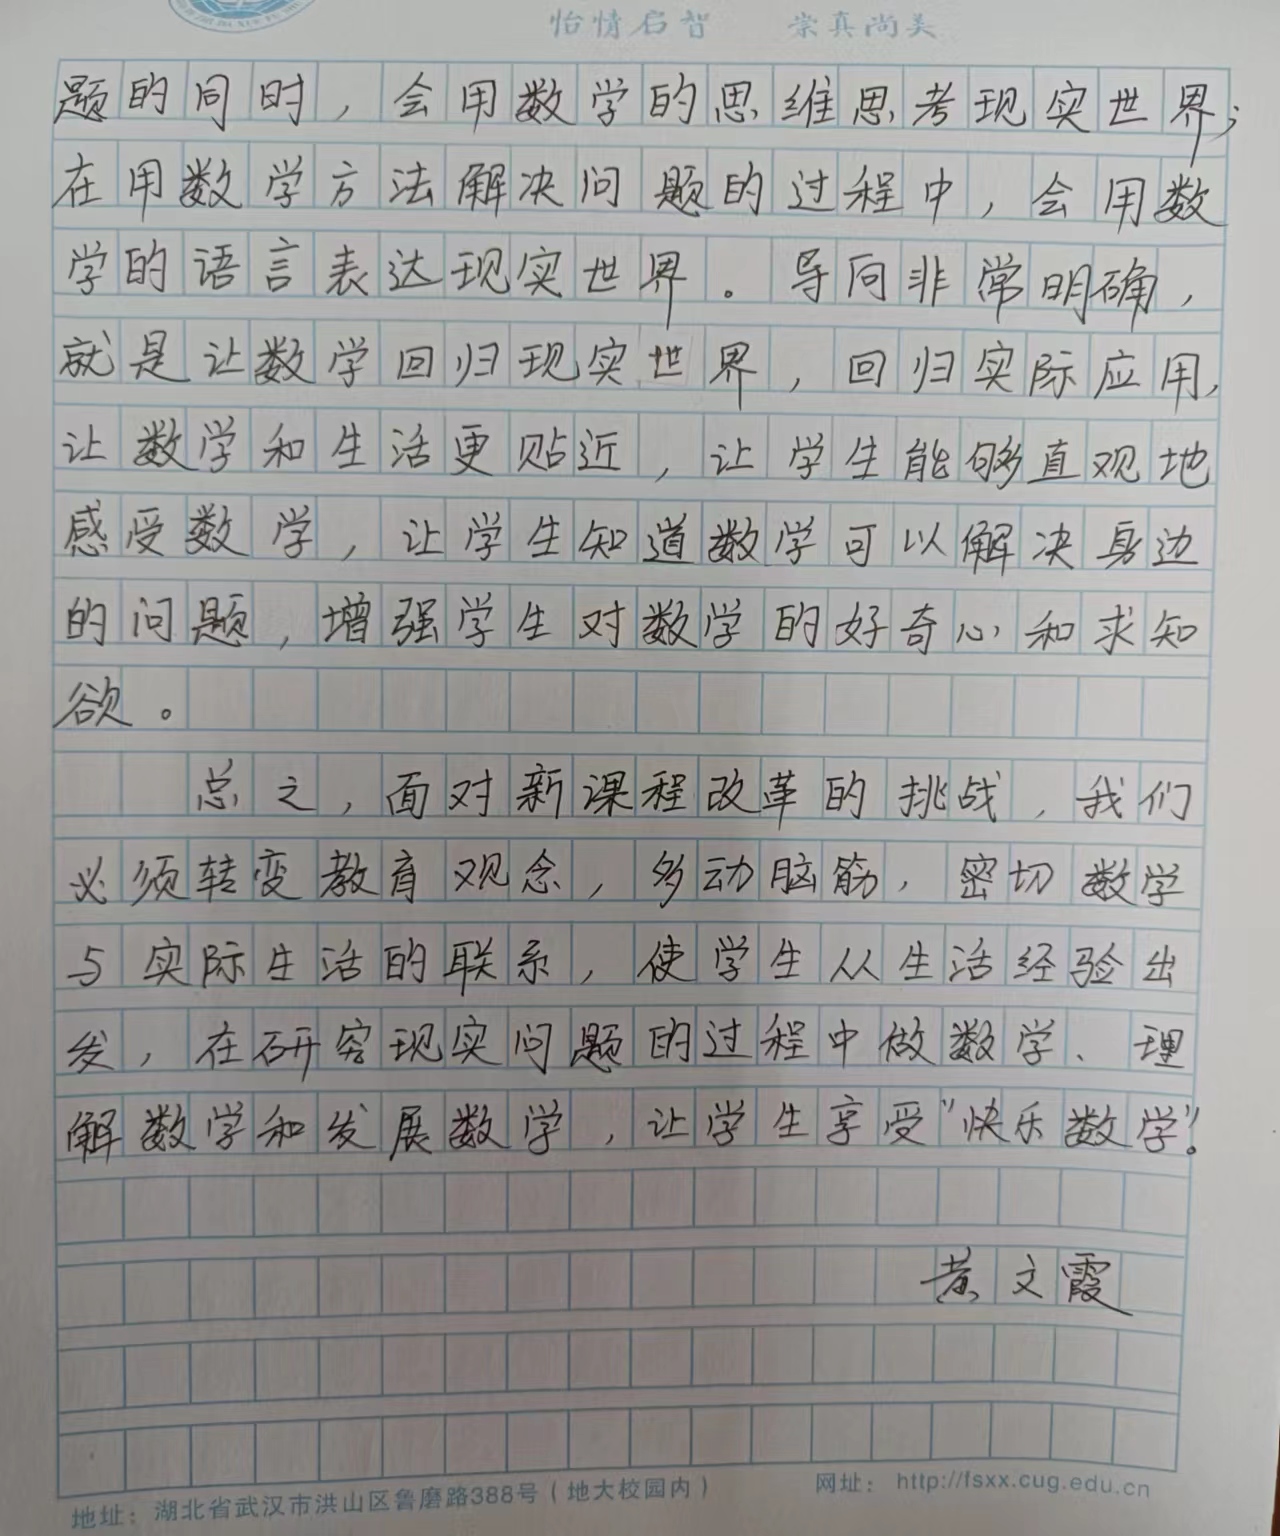 怡情启智 崇真尚美
题的同时，会用数学的思维思考现实世界；
在用数学方法解决问题的过程中，会用数
学的语言表达现实世界。导向非常明确，
就是让数学回归现实世界，回归实际应用，
让数学和生活更贴近，让学生能够直观地
感受数学，让学生知道数学可以解决身边
的问题，增强学生对数学的好奇心和求知
欲。
总之，面对新课程改革的挑战，我们
必须转变教育观念，多动脑筋，密切数学
与实际生活的联系，使学生从生活经验出
发，在研究现实问题的过程中做数学、理
解数学和发展数学，让学生享受“快乐数学”。
黄文霞
地址：湖北省武汉市洪山区鲁磨路388号（地大校园内） 网址：http://fsxx.cug.edu.cn